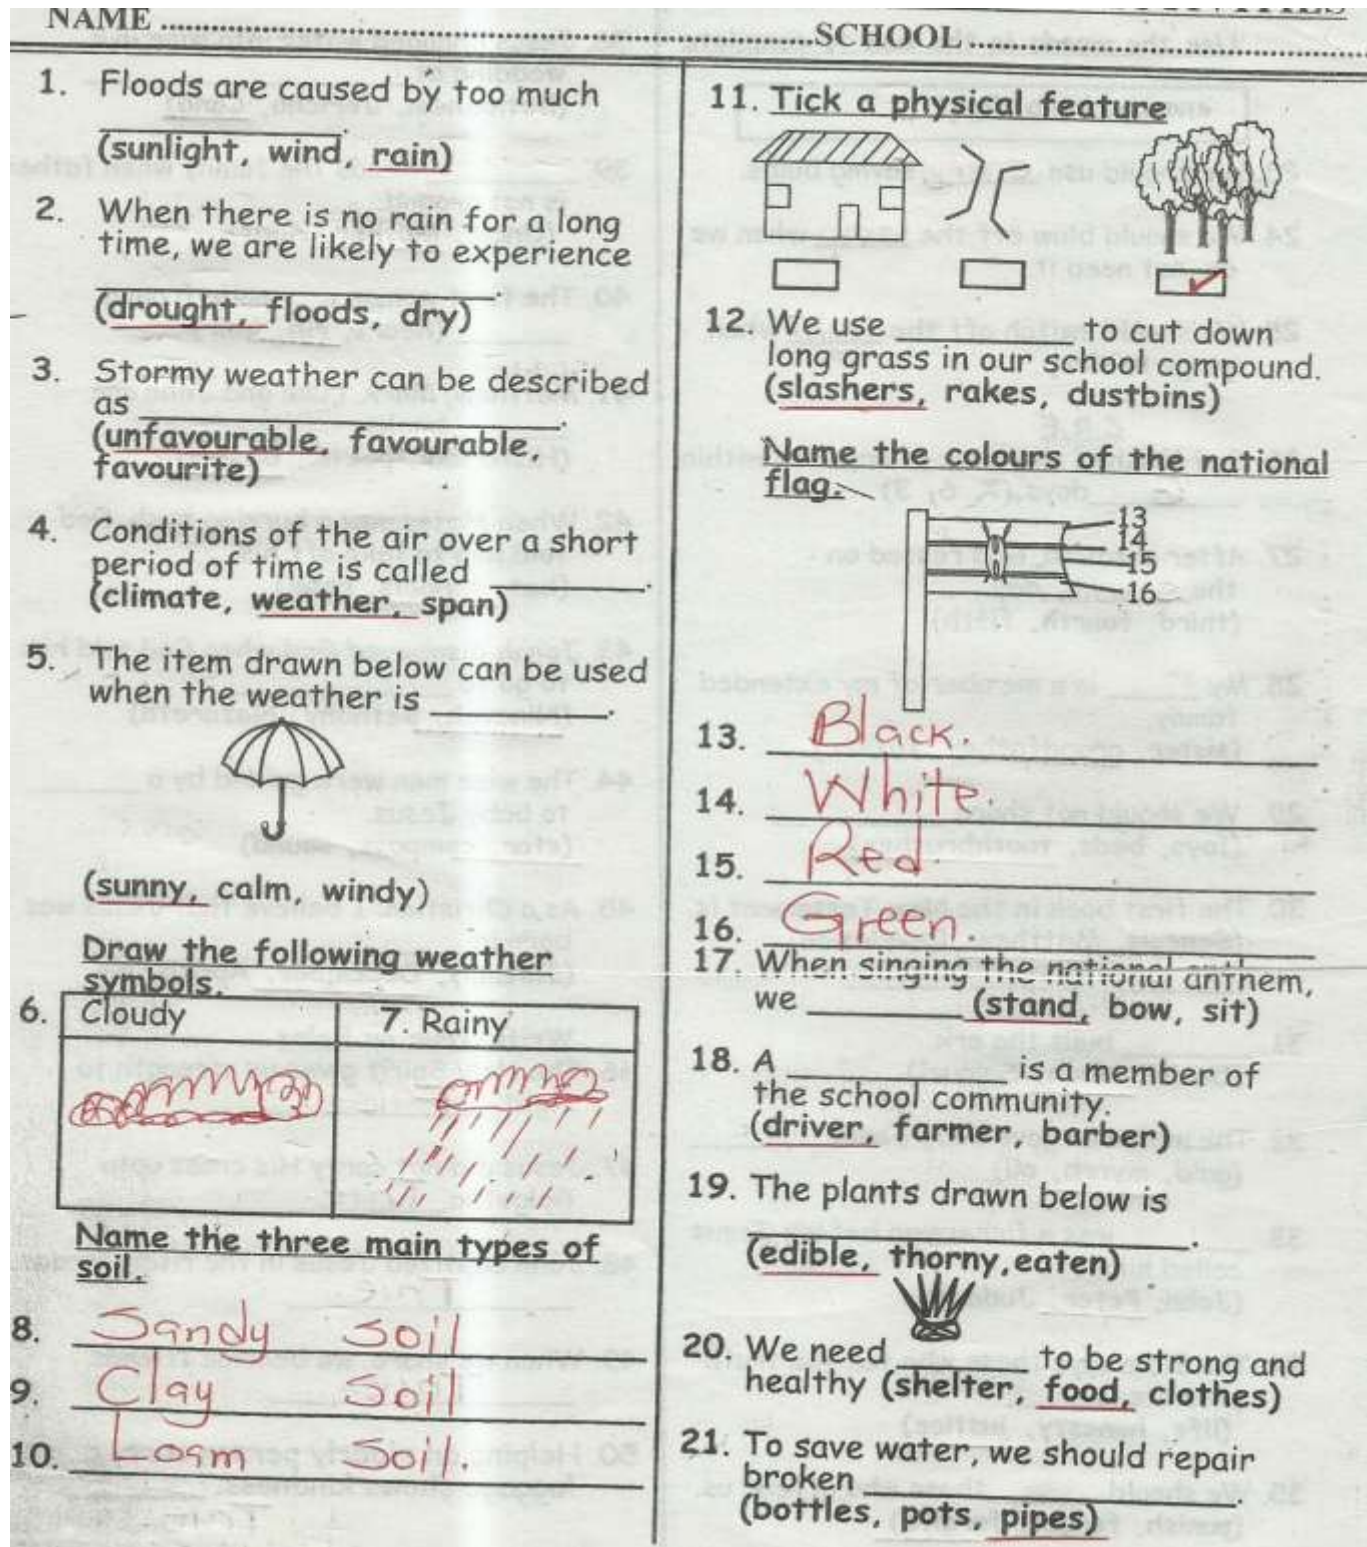 NAME ........ SCHOOL ........
1. Floods are caused by too much
__________.
(sunlight, wind, rain)
2. When there is no rain for a long
time, we are likely to experience
__________.
(drought, floods, dry)
3. Stormy weather can be described
as __________.
(unfavourable, favourable,
favourite)
4. Conditions of the air over a short
period of time is called __________.
(climate, weather, span)
5. The item drawn below can be used
when the weather is __________.
(sunny, calm, windy)
Draw the following weather
symbols.
6. Cloudy
7. Rainy
Name the three main types of
soil.
8. Sandy soil
9. Clay soil
10. Loam soil.
11. Tick a physical feature
12. We use __________ to cut down
long grass in our school compound.
(slashers, rakes, dustbins)
Name the colours of the national
flag.
13
14
15
16
13. Black.
14. White.
15. Red.
16. Green.
17. When singing the national anthem,
we __________ (stand, bow, sit)
18. A __________ is a member of
the school community.
(driver, farmer, barber)
19. The plants drawn below is
__________.
(edible, thorny, eaten)
20. We need __________ to be strong and
healthy (shelter, food, clothes)
21. To save water, we should repair
broken __________.
(bottles, pots, pipes)